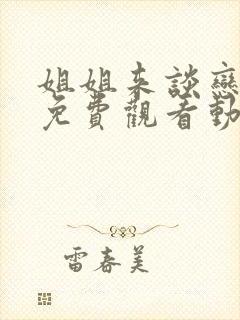 姐姐来談戀
免費觀看動
雷春美